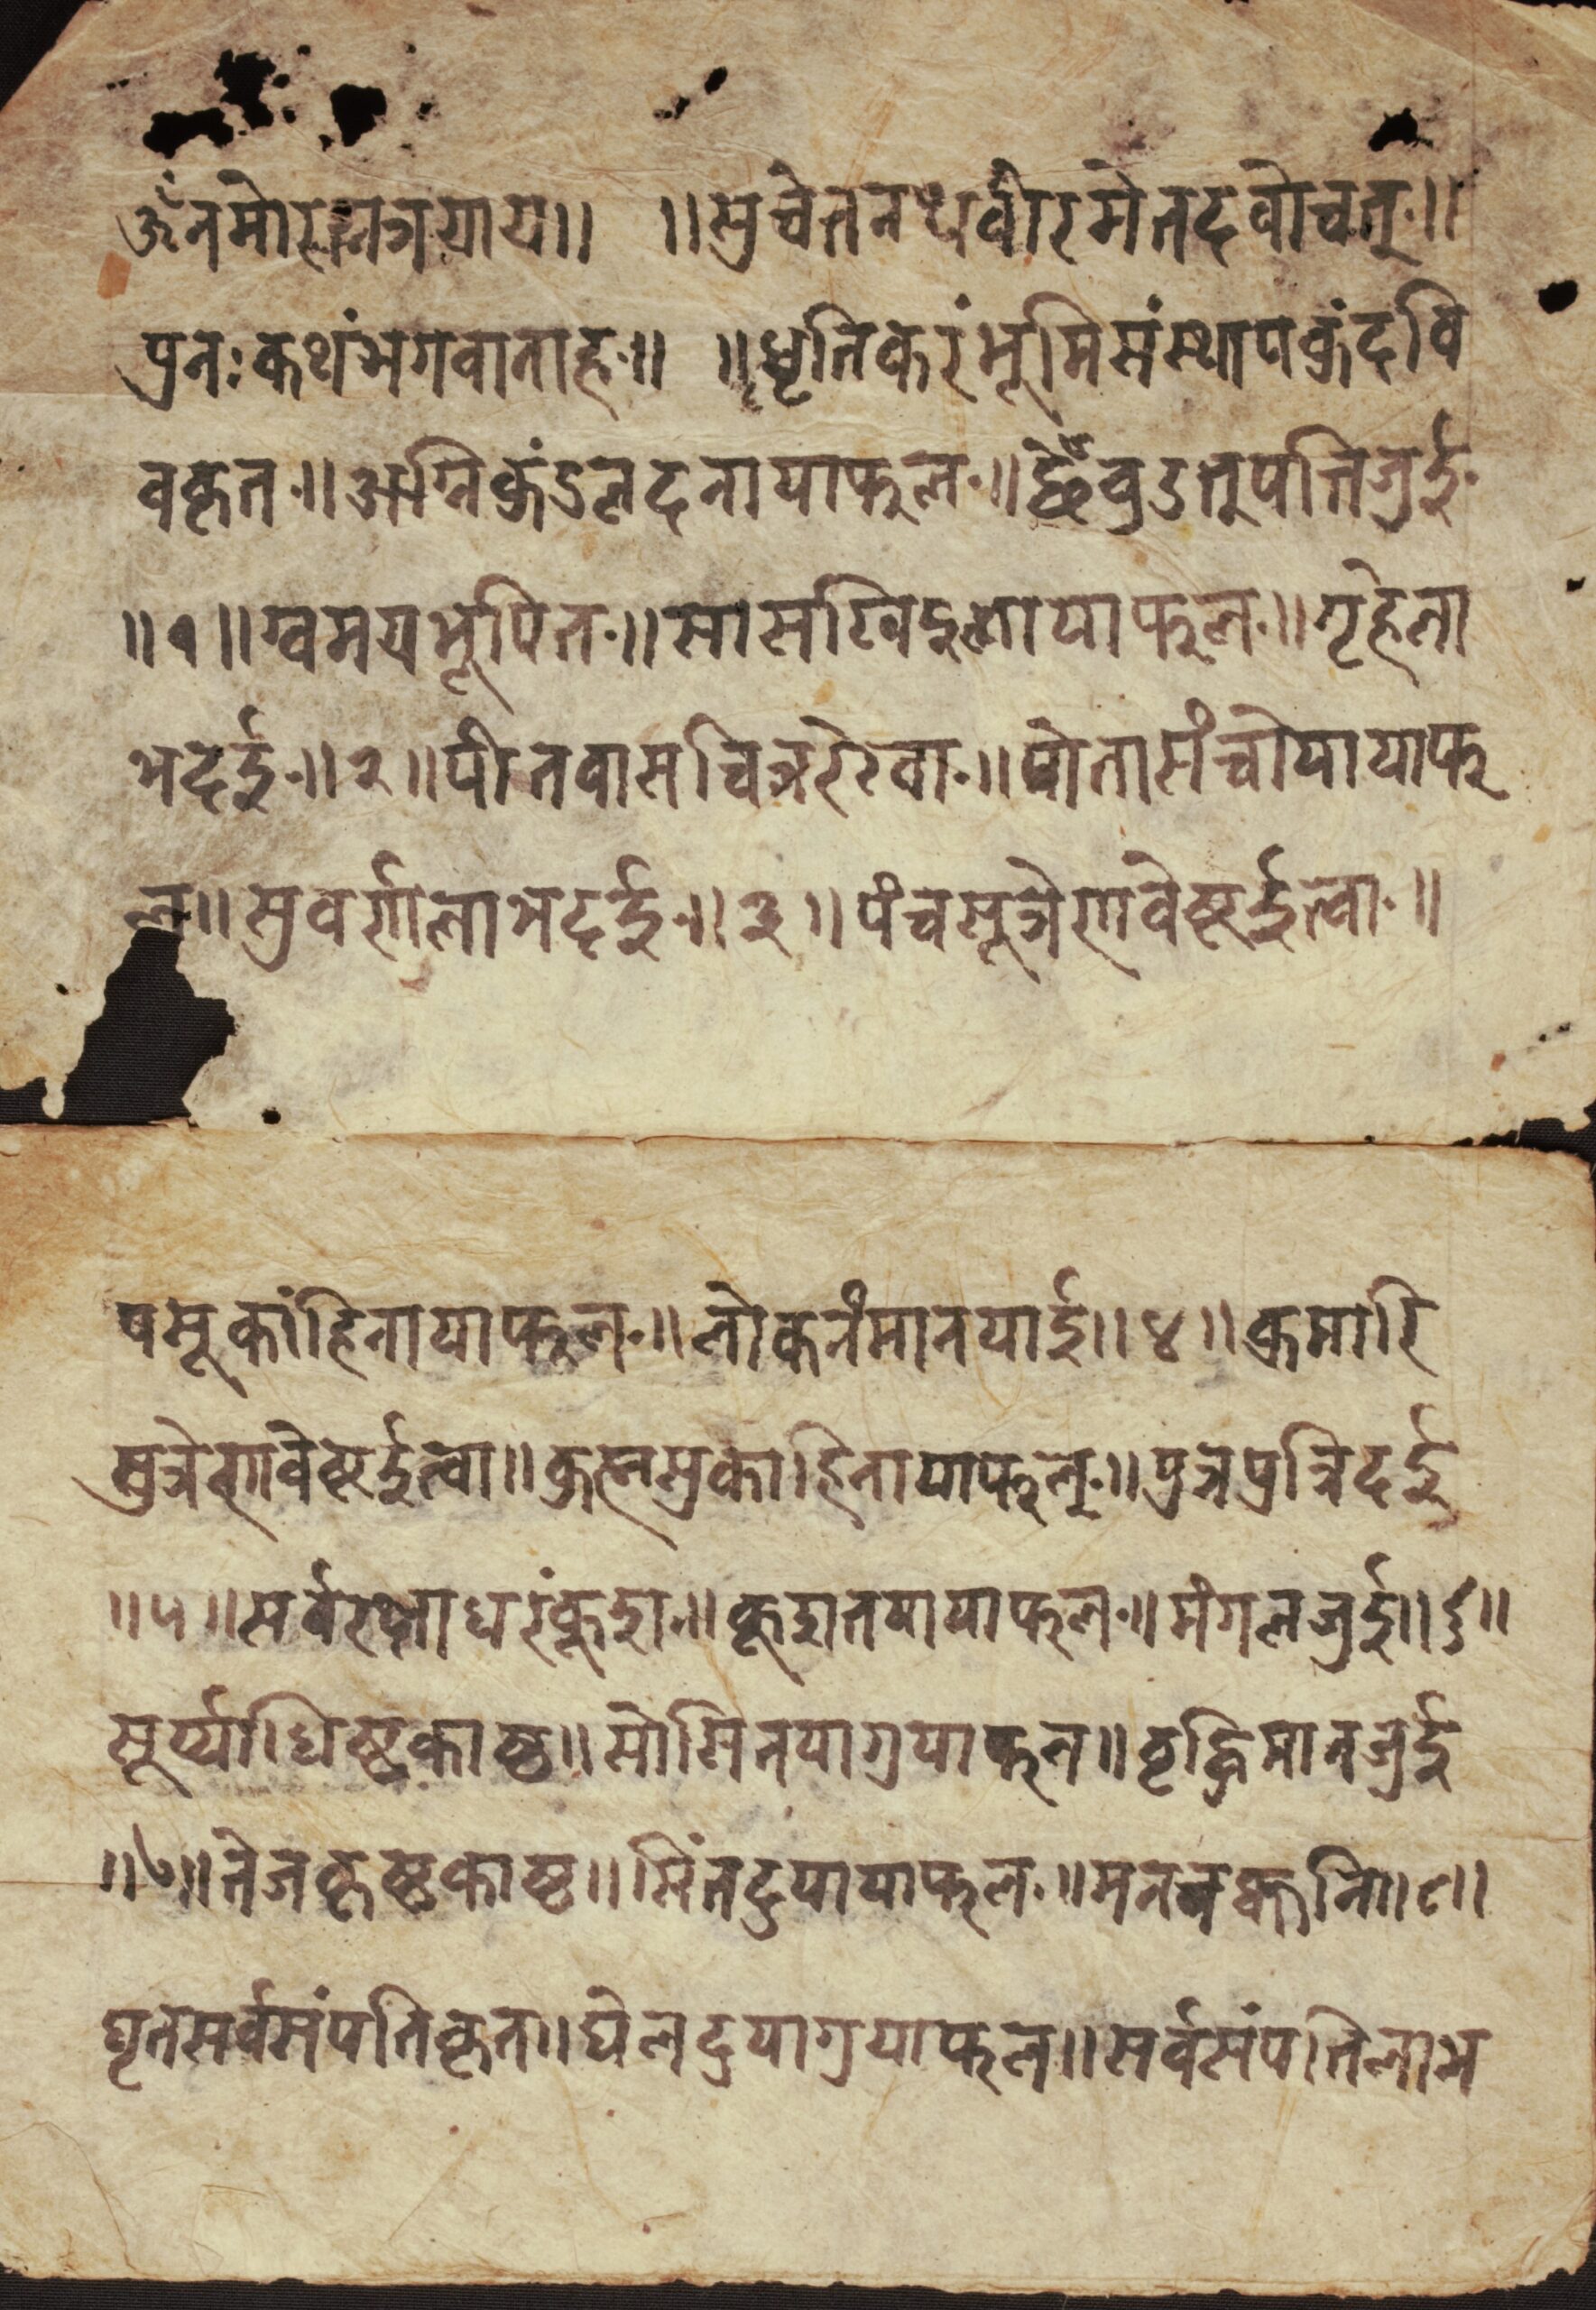 ॐनमोरत्नत्रयाय॥ ॥सुचेतनथवीरमेतदवोचत्॥
पुनःकथंभगवानाह॥ ॥धृतिकरंभूमिसंस्थापकुंदवि
वकृत॥अग्निकुंडलदनायाफल॥ तुपत्तिजुई
॥१॥ भूपित॥ यायाफल॥गृहेला
भदई॥२॥पीतवासचित्ररेखा॥पोतासंचोयायाफ
ल॥सुवर्णलाभदई॥३॥पंचसूत्रेणवेष्टईत्वा॥
षमूकांहिनायाफल॥लोकनंमानयाई॥४॥कुमारि
सुत्रेणवेष्टईत्वा॥ काहिनायाफल॥पुत्रपुत्रिदई
॥५॥सर्वरक्षाधरंकूश॥कूशतयायाफल॥मंगलजुई॥६॥
सूर्य्याधिष्टकाष्ठ॥सोसिनयागुयाफल॥वृद्धिमानजुई
॥७॥तेजकृष्टकाष्ठ॥सिंतदुयायाफल॥मननक्वनि॥८॥
घृतसर्वसंपतिकृत॥घेलदुयागुयाफल॥सर्वसंपतिलाभ